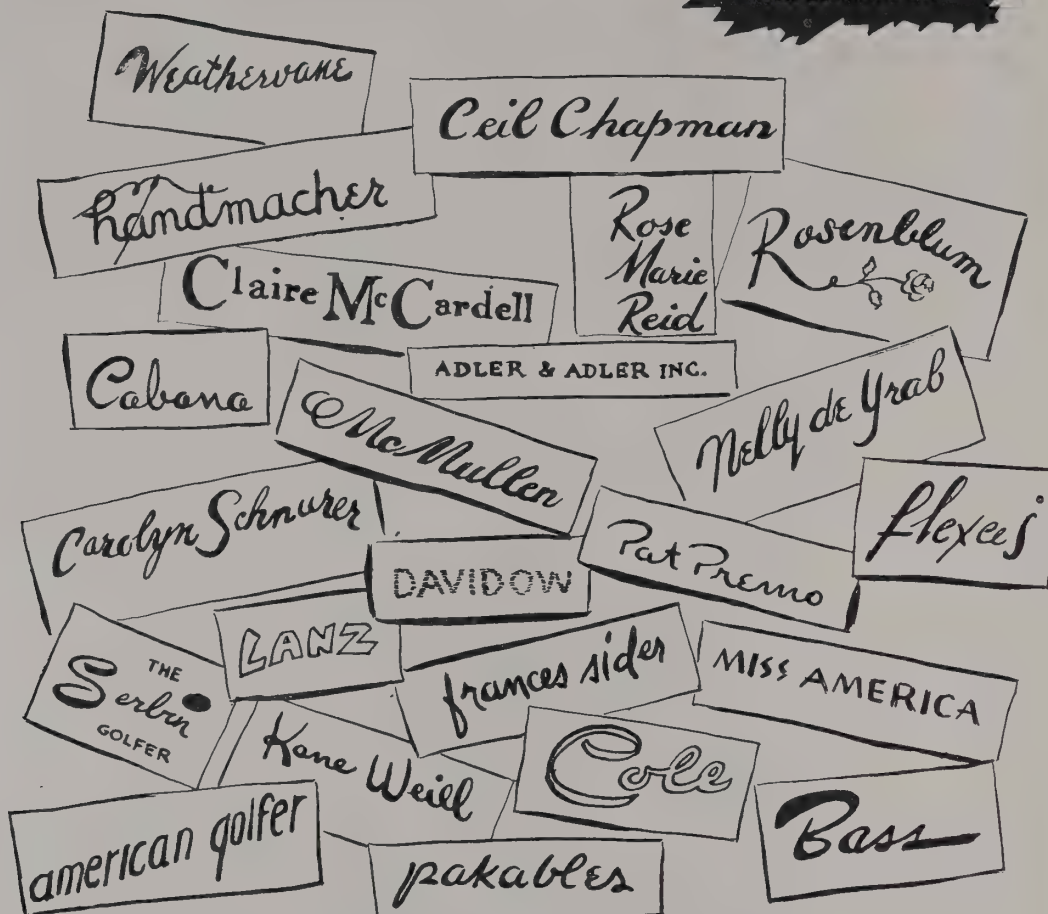 Weathervane
Ceil Chapman
handmacher
Rose
Marie
Reid
Rosenblum
Claire McCardell
ADLER & ADLER INC.
Cabana
McMullen
Nelly de Grab
Carolyn Schnurer
flexees
DAVIDOW
Pat Premo
LANZ
THE
Serbin
GOLFER
frances sider
MISS AMERICA
Kane Weill
Cole
american golfer
Bass
pakables